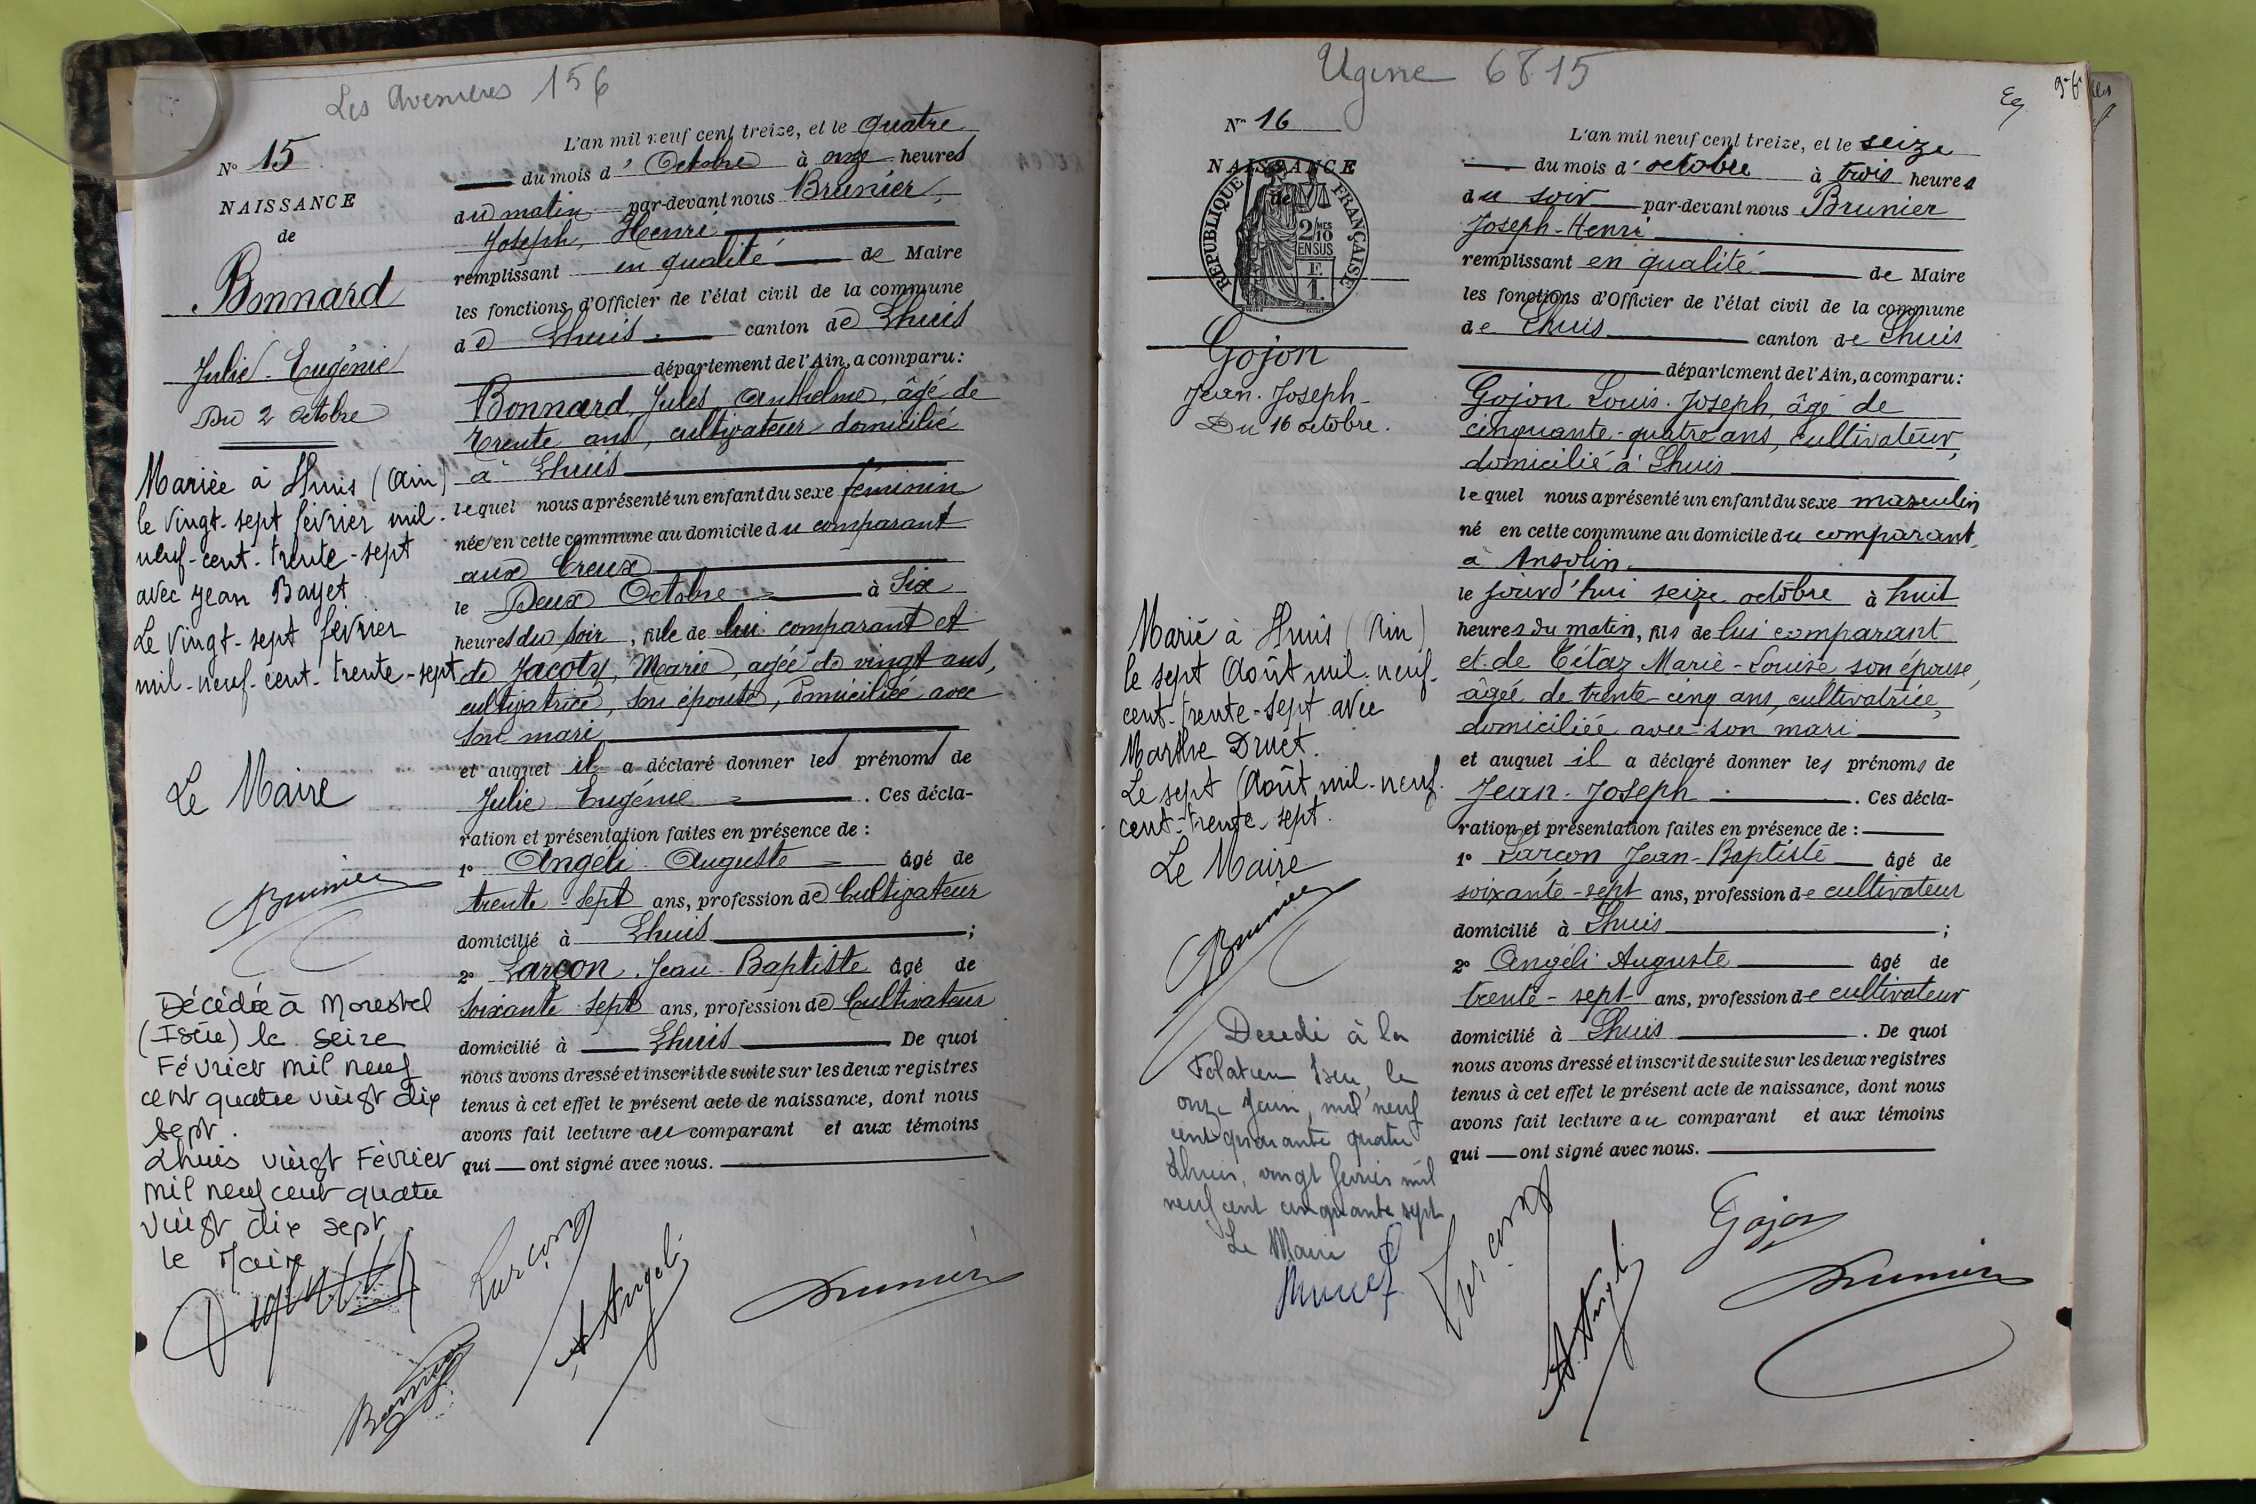 Les Avenieres 156
N° 15
NAISSANCE
de
Bonnard
Julie-Eugénie
Du 2 octobre
Mariée à Lhuis (Ain)
le vingt-sept février mil-
neuf-cent-trente-sept
avec Jean Bayet
Le vingt-sept février
mil-neuf-cent-trente-sept
Le Maire
Brunier
Décédée à Morestel
(Isère) le seize
Février mil neuf
cent quatre vingt dix
sept.
Lhuis vingt Février
mil neuf cent quatre
vingt dix sept
le Maire
L'an mil neuf cent treize, et le quatre
du mois d'Octobre à onze heures
du matin par-devant nous Brunier,
Joseph, Henri
remplissant en qualité de Maire
les fonctions d'Officier de l'état civil de la commune
de Lhuis canton de Lhuis
département de l'Ain, a comparu:
Bonnard, Jules Anthelme, âgé de
trente ans, cultivateur domicilié
à Lhuis
lequel nous a présenté un enfant du sexe féminin
née en cette commune au domicile du comparant
aux Creux
le Deux Octobre à Six
heures du soir, fille de lui comparant et
de Jacoty, Marie, agée de vingt ans,
cultivatrice, son épouse, domiciliée avec
son mari
et auquel il a déclaré donner les prénoms de
Julie Eugénie. Ces décla-
ration et présentation faites en présence de :
1° Angéli Auguste âgé de
trente-sept ans, profession de Cultivateur
domicilié à Lhuis ;
2° Larçon Jean-Baptiste âgé de
soixante sept ans, profession de Cultivateur
domicilié à Lhuis De quoi
nous avons dressé et inscrit de suite sur les deux registres
tenus à cet effet le présent acte de naissance, dont nous
avons fait lecture au comparant et aux témoins
qui ont signé avec nous.
Larçon
A Angeli
Brunier
Bonnard
Ugine 6815
N° 16
NAISSANCE
de
RÉPUBLIQUE FRANÇAISE
2/10 MES
EN SUS
Gojon
Jean-Joseph-
Du 16 octobre.
Marié à Lhuis (Ain)
le sept Août mil-neuf-
cent-trente-sept avec
Marthe Druet.
Le sept Août mil-neuf-
cent-trente-sept.
Le Maire
Brunier
Décédé à la
Folatière Isère, le
onze Juin, mil neuf
cent quarante quatre
Lhuis, vingt février mil
neuf cent cinquante sept
Le Maire
L'an mil neuf cent treize, et le seize
du mois d'octobre à trois heures
du soir par-devant nous Brunier
Joseph-Henri
remplissant en qualité de Maire
les fonctions d'Officier de l'état civil de la commune
de Lhuis canton de Lhuis
département de l'Ain, a comparu:
Gojon Louis-Joseph, âgé de
cinquante-quatre ans, cultivateur,
domicilié à Lhuis
lequel nous a présenté un enfant du sexe masculin
né en cette commune au domicile du comparant,
à Ansolin.
le jourd'hui seize octobre à huit
heures du matin, fils de lui comparant
et de Tétaz Marie-Louise son épouse,
âgée de trente-cinq ans, cultivatrice,
domiciliée avec son mari
et auquel il a déclaré donner les prénoms de
Jean-Joseph. Ces décla-
ration et présentation faites en présence de :
1° Larçon Jean-Baptiste âgé de
soixante-sept ans, profession de cultivateur
domicilié à Lhuis ;
2° Angéli Auguste âgé de
trente-sept ans, profession de cultivateur
domicilié à Lhuis. De quoi
nous avons dressé et inscrit de suite sur les deux registres
tenus à cet effet le présent acte de naissance, dont nous
avons fait lecture au comparant et aux témoins
qui ont signé avec nous.
Larçon
A. Angeli
Gojon
Brunier